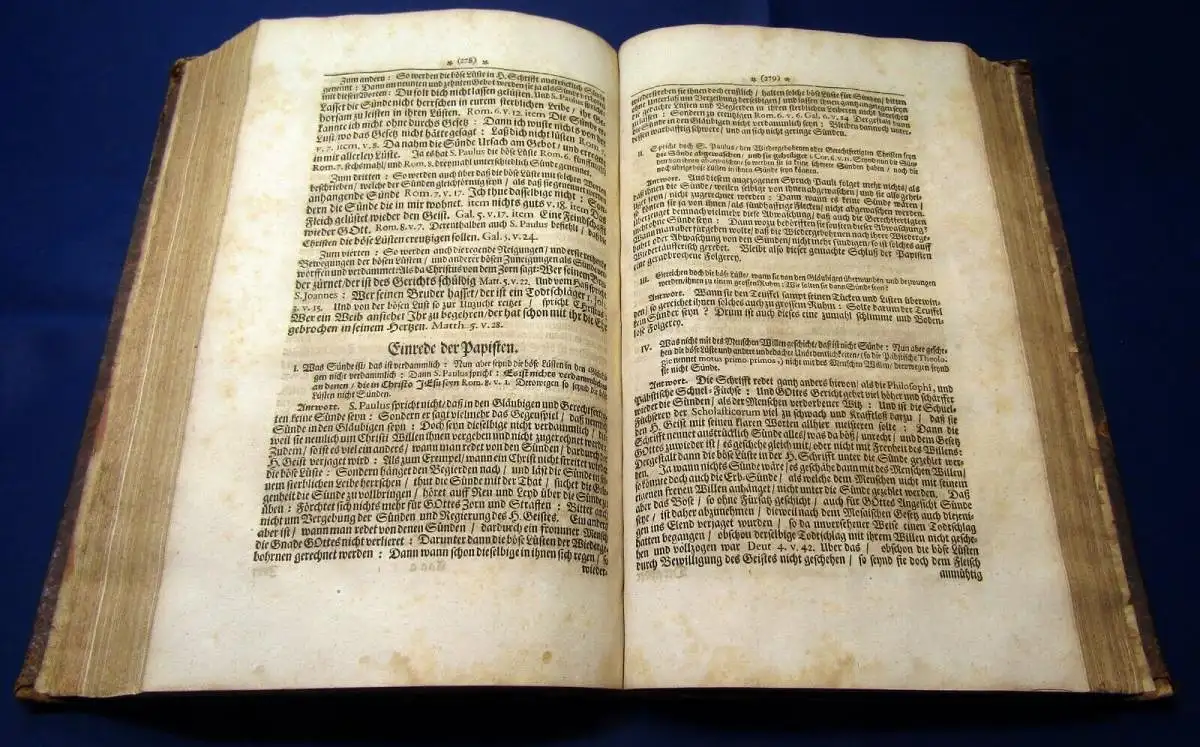 (278)
Zum andern: So werden die böse Lüste in H. Schrifft austrücklich Sünde
genennt: Dann im neunten und zehnten Gebot werden sie ja als Sünde verbotten
mit diesen Worten: Du solt dich nicht lassen gelüsten. Und S. Paulus
Lasset die Sünde nicht herrschen in eurem sterblichen Leibe/ ihr Ge-
horsam zu leisten in ihren Lüsten. Rom. 6. v. 12. item Die Sünde er-
kannte ich nicht ohne durchs Gesetz: Dann ich wuste nichts von der
Lust/ wo das Gesetz nicht hätte gesagt: Laß dich nicht lüsten Rom.
v. 7. item, v. 8. Da nahm die Sünde Ursach am Gebot/ und erregte
in mir allerley Lüste. Ja es hat S. Paulus die böse Lüste Rom. 6. fünffmahl
Rom. 7. sechsmahl/ und Rom. 8. dreymahl unterschiedlich Sünde genennet.
Zum dritten: So werden auch über daß die böse Lüste mit solchen Worten
beschrieben/ welche der Sünden gleichförmig seyn/ als daß sie genennet werden
anhangende Sünde Rom. 7. v. 17. Ich thue dasselbige nicht: Son-
dern die Sünde die in mir wohnet. item nichts guts v. 18. item Das
Fleisch gelüstet wieder den Geist. Gal. 5. v. 17. item Eine Feindschafft
wieder GOtt. Rom. 8. v. 7. Derenthalben auch S. Paulus befiehlt/ daß die
Christen die böse Lüsten creutzigen sollen. Gal. 5. v. 24.
Zum vierten: So werden auch die regende Neigungen/ und erste reitzende
Bewegungen der bösen Lüsten/ und anderer bösen Zuneigungen als Sünden ver-
worffen und verdammet: Als da Christus von dem Zorn sagt: Wer seinem Bru-
der zürnet/ der ist des Gerichts schuldig Matt. 5. v. 22. Und vom Haß spricht
S. Joannes: Wer seinen Bruder hasset/ der ist ein Todtschläger 1. Joh.
3. v. 15. Und von der bösen Lust so zur Unzucht reitzet/ spricht Christus:
Wer ein Weib ansiehet ihr zu begehren/ der hat schon mit ihr die Ehe
gebrochen in seinem Hertzen. Matth. 5. v. 28.
Einrede der Papisten.
I. Was Sünde ist/ das ist verdammlich: Nun aber seynd die böse Lüsten in den
gen nicht verdammlich: Dann S. Paulus spricht: Es ist nichts verdammliches
an denen/ die in Christo JEsu seyn Rom. 8. v. 1. Derowegen so seynd die böse
Lüsten nicht Sünden.
Antwort. S. Paulus spricht nicht/ daß in den Gläubigen und Gerechtfertig-
ten keine Sünde seyn: Sondern er sagt vielmehr das Gegenspiel/ daß nemlich
Sünde in den Gläubigen seyn: Doch seyn dieselbige nicht verdammlich/ die-
weil sie nemlich um Christi Willen ihnen vergeben und nicht zugerechnet werden.
Zudem/ so ist es viel ein anders/ wann man redet von den Sünden/ dardurch der
H. Geist verjaget wird: Als zum Exempel/ wann ein Christ nicht streitet wieder
die böse Lüste: Sondern hänget den Begierden nach/ und läst die Sünde in sei-
nem sterblichen Leibe herrschen/ thut die Sünde mit der That/ suchet die Gele-
genheit die Sünde zu vollbringen/ höret auff Reu und Leyd über die Sünde zu
üben: Förchtet sich nichts mehr für GOttes Zorn und Straffen: Bittet auch
nicht um Vergebung der Sünden und Regierung des H. Geistes. Ein anders
aber ist/ wann man redet von denen Sünden/ dardurch ein frommer Mensch
die Gnade GOttes nicht verlieret: Darunter dann die böse Lüsten der Wiederge-
bohrnen gerechnet werden: Dann wann schon dieselbige in ihnen sich regen/ so
wieder-
(279)
wiederstreben sie ihnen doch ernstlich/ halten solche böse Lüste für Sünden/ bitten
ohne Unterlaß um Vergebung derselbigen/ und lassen ihnen gantz angelegen seyn
die gedachte Lüsten und Begierden in ihren sterblichen Leiberen nicht herrschen
zu lassen: Sondern zu creutzigen Rom. 6. v. 6. Gal. 6. v. 14. Dergestalt dann
die Sünde in den Gläubigen nicht verdammlich seyn: Bleiben dennoch unter-
dessen warhafftig schwere/ und an sich nicht geringe Sünden.
II. Spricht doch S. Paulus/ den Wiedergebohrnen oder Gerechtfertigten Christen seyn
die Sünde abgewaschen/ und sie geheiliget 1 Cor. 6. v. 11. Seynd nun die Sün-
den von ihnen abgewaschen/ so werden sie ja keine fehrnere Sünden haben/ noch die
noch übrige böse Lüsten in ihnen Sünde seyn können.
Antwort. Aus diesem angezogenen Spruch Pauli folget mehr nichts/ als
daß ihnen die Sünde/ weilen selbige von ihnen abgewaschen/ und sie also geheiliget
seyn/ nicht zugerechnet werden: Dann wann es keine Sünde wären/
so können sie ja von ihnen/ als sündhafftige Flecken/ nicht abgewaschen werden.
Uberzeuget demnach vielmehr diese Abwaschung/ daß auch die Gerechtfertigten
nicht ohne Sünde seyn: Dann wozu bedörfften sie sonsten dieser Abwaschung?
Wann man aber fürgeben wolte/ daß die Wiedergebohrnen nach ihrer Wiederge-
bahrt oder Abwaschung von den Sünden/ nicht mehr sündigen/ so ist solches auff
Wiedertäufferisch geredet. Bleibt also dieser gemachte Schluß der Papisten
eine geradbrochene Folgerey.
III. Gereichen doch die böse Lüste/ wann sie von den Gläubigen überwunden und bezwungen
werden/ ihnen zu einem grossen Ruhm: Wie solten sie dann Sünde seyn?
Antwort. Wann sie den Teuffel sampt seinen Tücken und Listen überwin-
den/ so gereichet ihnen solches auch zu grossem Ruhm: Solte darum der Teuffel
kein Sünder seyn? Drum ist auch dieses eine zumahl schlimme und Boden-
lose Folgerey.
IV. Was nicht mit des Menschen Willen geschicht/ das ist nicht Sünde: Nun aber gesche-
hen die böse Lüste und andere unbedachte Unordentlichkeiten/ (so die Päbstische Theolo-
gie nennet motus primo primos,) nicht mit des Menschen Willen/ derowegen seynd
sie nicht Sünde.
Antwort. Die Schrifft redet gantz anders hievon/ als die Philosophi, und
Päbstische Schuel-Füchse: Und GOttes Gericht gehet viel höher und schärffer
wieder die Sünden/ als der Menschen verdorbener Witz: Und ist die Schuel-
Füchserey der Scholasticorum viel zu schwach und Krafftloß darzu/ daß sie
den H. Geist mit seinen klaren Worten allhier meistern solte: Dann die
Schrifft nennet austrücklich Sünde alles/ was da böß/ unrecht/ und dem Gesetz
GOttes zuwieder ist/ es geschehe gleich mit/ oder nicht mit Freyheit des Willens:
Dergestalt dann die böse Lüste in der H. Schrifft unter die Sünde gezehlet wer-
den. Ja wann nichts Sünde wäre/ es geschähe dann mit des Menschen Willen/
so könne doch auch die Erb-Sünde/ als welche dem Menschen nicht mit seinem
eigenen freyen Willen anhänget/ nicht unter die Sünde gezehlet werden. Daß
aber das Böse/ so ohne Fürsatz geschicht/ auch für GOttes Angesicht Sünde
seye/ ist daher abzunehmen/ dieweil nach dem Mosaischen Gesetz auch diejeni-
gen ins Elend verjaget wurden/ so da unversehener Weise einen Todtschlag
hatten begangen/ obschon derselbige Todtschlag mit ihrem Willen nicht gesche-
hen und vollzogen war Deut. 4. v. 42. Uber das/ obschon die böse Lüsten
durch Bewilligung des Geistes nicht geschehen/ so seynd sie doch dem Fleisch
anmühtig